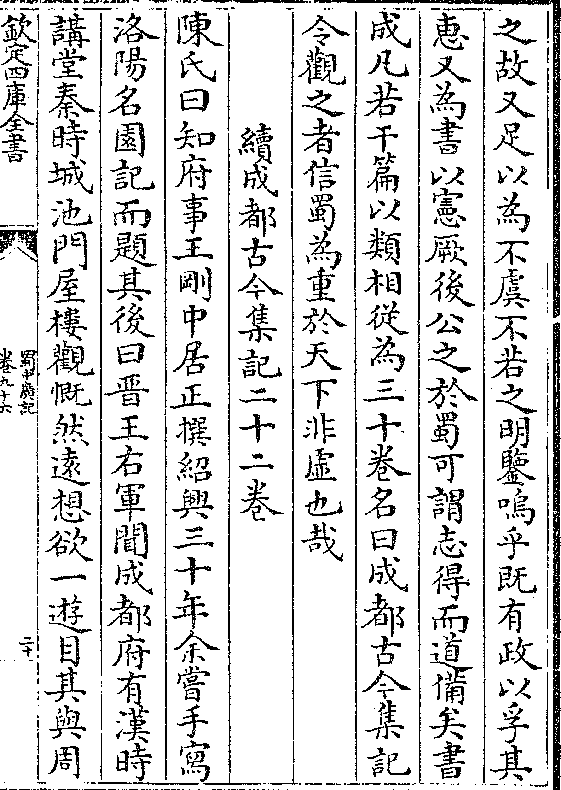 之故又足以為不虞不若之明鑒嗚乎既有政以孚其
恵又為書以憲厥後公之於蜀可謂志得而道備矣書
成凡若干篇以類相從為三十卷名曰成都古今集記
令觀之者信蜀為重於天下非虛也哉
續成都古今集記二十二卷
陳氏曰知府事王剛中居正撰紹興三十年余嘗手寫
洛陽名園記而題其後曰晋王右軍聞成都府有漢時
講堂秦時城池門屋樓觀慨然遠想欲一遊目其與周
欽定四庫全書
蜀中廣記
卷九十六
二十